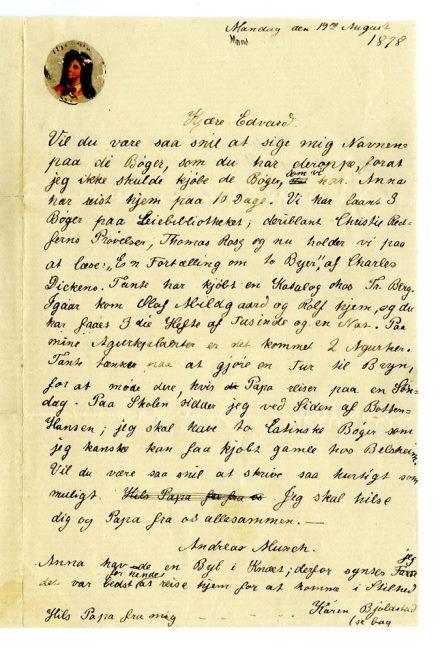 Mandag den 19de August
1878
Kjære Edvard.
Vil du være saa snil at sige mig Navnene
paa de Bøger, som du har deroppe, forat
jeg ikke skulde kjøbe de Bøger, som vi har. Anna
har reist hjem paa 10 Dage. Vi har laant 3
Bøger paa Leiebibliotheket; deriblant Christie Red-
ferns Prøvelser, Thomas Ross og nu holder vi paa
at læse: „En Fortælling om to Byer", af Charles
Dickens. Tante har kjøbt en Katalog hos Th. Berg.
Igaar kom Olaf Mildgaard og Rolf hjem, og du
har faaet 3die Hefte af Tusinde og en Nat. Paa
mine Agurkplanter er det kommet 2 Agurker.
Tante tænker paa at gjøre en Tur til Bryn,
for at møde dere, hvis Papa reiser paa en Søn-
dag. Paa Skolen sidder jeg ved Siden af Botten-
Hansen; jeg skal have to Latinske Bøger som
jeg kanske kan faa kjøbt gamle hos
Vil du være saa snil at skrive saa hurtigt som
muligt. Hils Papa fra os Jeg skal hilse
dig og Papa fra os allesammen. —
Andreas Munch.
Anna har en Byl i Knæet; derfor synes jeg
det var bedst for hende at reise hjem for at komme i Stilhed
Hils Papa fra mig Karen Bjølstad
(se bag